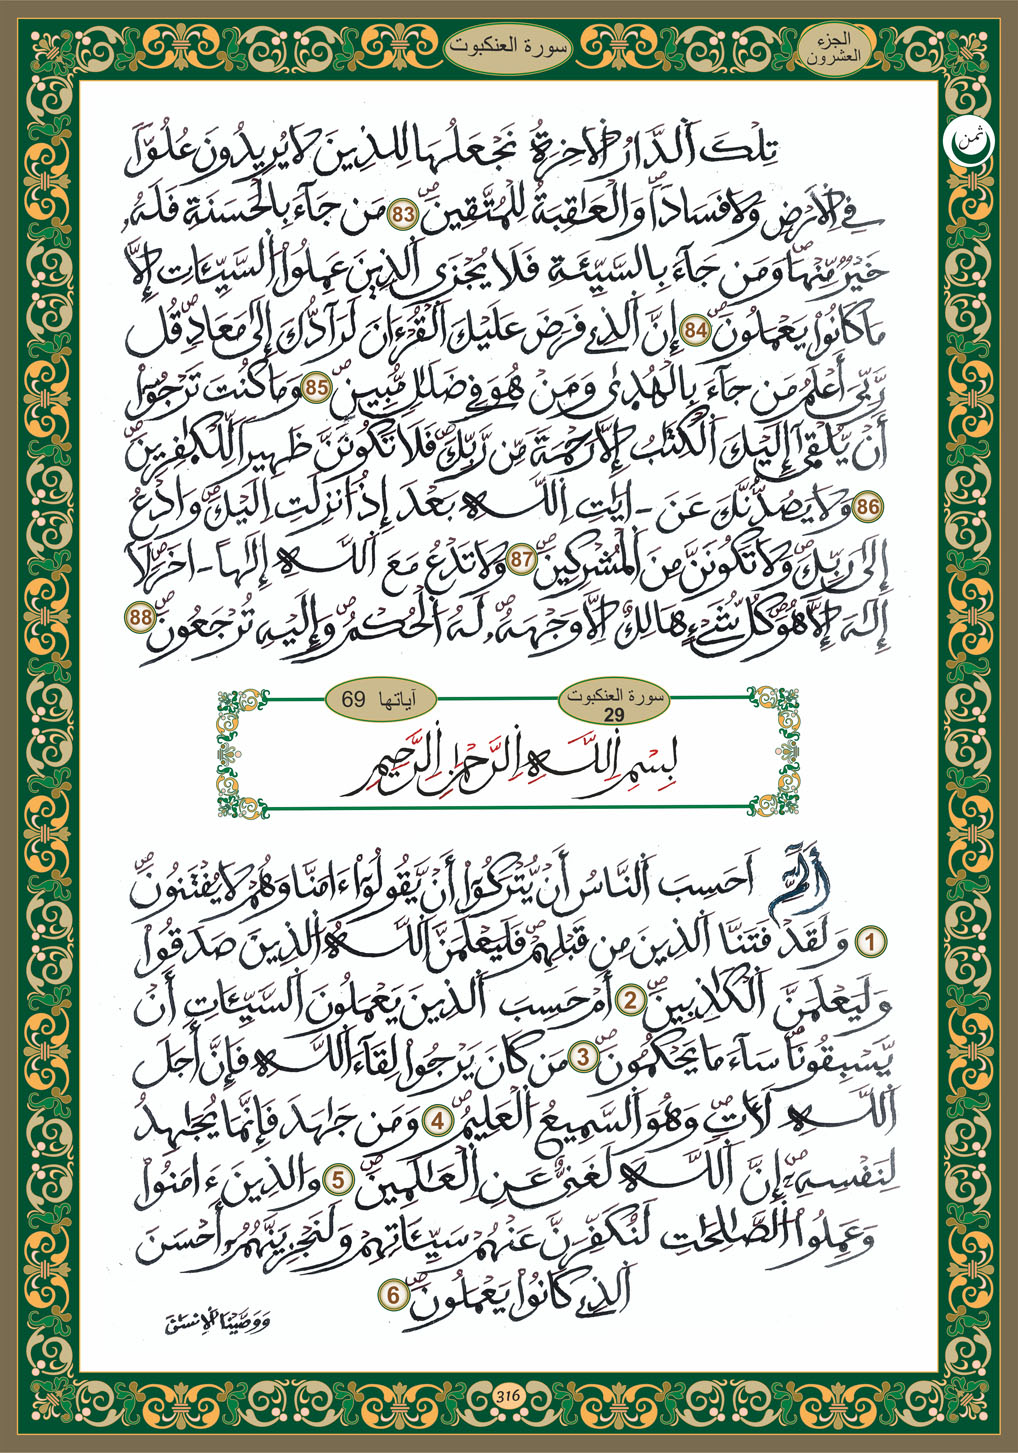 سورة العنكبوت
الجزء
العشرون
ثمن
تِلْكَ اَ۬لدَّارُ اُ۬لَاخِرَةُ نَجْعَلُهَا لِلذِينَ لَا يُرِيدُونَ عُلُوّاٗ
فِے اِ۬لَارْضِ وَلَا فَسَاداٗ وَالْعَٰقِبَةُ لِلْمُتَّقِينَۖ 83 مَن جَآءَ بِالْحَسَنَةِ فَلَهُۥ
خَيْرٞ مِّنْهَاۖ وَمَن جَآءَ بِالسَّيِّئَةِ فَلَا يُجْزَي اَ۬لذِينَ عَمِلُوا۟ اُ۬لسَّيِّـَٔاتِ إِلَّا
مَا كَانُوا۟ يَعْمَلُونَۖ 84 إِنَّ اَ۬لذِے فَرَضَ عَلَيْكَ اَ۬لْقُرْءَانَ لَرَآدُّكَ إِلَىٰ مَعَادٖۖ قُل
رَّبِّيَ أَعْلَمُ مَن جَآءَ بِالْهُدٜىٰ وَمَنْ هُوَ فِے ضَلَٰلٖ مُّبِينٖۖ 85 وَمَا كُنتَ تَرْجُوٓا۟
أَنْ يُّلْقَىٰٓ إِلَيْكَ اَ۬لْكِتَٰبُ إِلَّا رَحْمَةٗ مِّن رَّبِّكَۖ فَلَا تَكُونَنَّ ظَهِيراٗ لِّلْكٰٜفِرِينَۖ
86 وَلَا يَصُدُّنَّكَ عَنَ ـ اٰيَٰتِ اِ۬للَّهِ بَعْدَ إِذُ ا۟نزِلَتِ اِلَيْكَۖ وَادْعُ
إِلَىٰ رَبِّكَۖ وَلَا تَكُونَنَّ مِنَ اَ۬لْمُشْرِكِينَۖ 87 وَلَا تَدْعُ مَعَ اَ۬للَّهِ إِلَٰهاً ـ اٰخَرَۖ لَآ
إِلَٰهَ إِلَّا هُوَۖ كُلُّ شَےْءٍ هَالِكٌ اِلَّا وَجْهَهُۥۖ لَهُ اُ۬لْحُكْمُ وَإِلَيْهِ تُرْجَعُونَۖ 88
سورة العنكبوت
29
آياتها 69
بِسْمِ اِ۬للَّهِ اِ۬لرَّحْمَٰنِ اِ۬لرَّحِيمِ
أَلَٓمِّٓۖ أَحَسِبَ اَ۬لنَّاسُ أَنْ يُّتْرَكُوٓا۟ أَنْ يَّقُولُوٓا۟ ءَامَنَّا وَهُمْ لَا يُفْتَنُونَۖ
1 وَلَقَدْ فَتَنَّا اَ۬لذِينَ مِن قَبْلِهِمْۖ فَلَيَعْلَمَنَّ اَ۬للَّهُ اُ۬لذِينَ صَدَقُوا۟
وَلَيَعْلَمَنَّ اَ۬لْكَٰذِبِينَۖ 2 أَمْ حَسِبَ اَ۬لذِينَ يَعْمَلُونَ اَ۬لسَّيِّـَٔاتِ أَنْ
يَّسْبِقُونَاۖ سَآءَ مَا يَحْكُمُونَۖ 3 مَن كَانَ يَرْجُوا۟ لِقَآءَ اَ۬للَّهِ فَإِنَّ أَجَلَ
اَ۬للَّهِ لَأٓتٖۖ وَهُوَ اَ۬لسَّمِيعُ اُ۬لْعَلِيمُۖ 4 وَمَن جَٰهَدَ فَإِنَّمَا يُجَٰهِدُ
لِنَفْسِهِۦٓۖ إِنَّ اَ۬للَّهَ لَغَنِيٌّ عَنِ اِ۬لْعَٰلَمِينَۖ 5 وَالذِينَ ءَامَنُوا۟
وَعَمِلُوا۟ اُ۬لصَّٰلِحَٰتِ لَنُكَفِّرَنَّ عَنْهُمْ سَيِّـَٔاتِهِمْ وَلَنَجْزِيَنَّهُمُۥٓ أَحْسَنَ
اَ۬لذِے كَانُوا۟ يَعْمَلُونَۖ 6
وَوَصَّيْنَا اَ۬لِانسَٰنَ
316